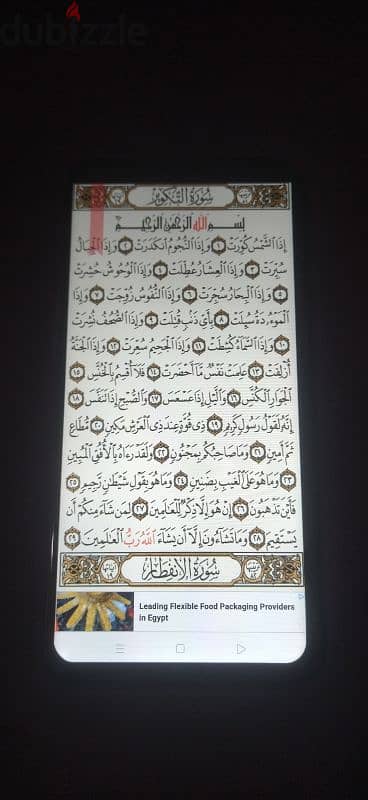 dubizzle
سُورَةُ التَّكْوِيرِ
بِسْمِ اللهِ الرَّحْمَنِ الرَّحِيمِ
إِذَا الشَّمْسُ كُوِّرَتْ ١ وَإِذَا النُّجُومُ انكَدَرَتْ ٢ وَإِذَا الْجِبَالُ
سُيِّرَتْ ٣ وَإِذَا الْعِشَارُ عُطِّلَتْ ٤ وَإِذَا الْوُحُوشُ حُشِرَتْ
٥ وَإِذَا الْبِحَارُ سُجِّرَتْ ٦ وَإِذَا النُّفُوسُ زُوِّجَتْ ٧ وَإِذَا
الْمَوْءُدَةُ سُئِلَتْ ٨ بِأَيِّ ذَنْبٍ قُتِلَتْ ٩ وَإِذَا الصُّحُفُ نُشِرَتْ
١٠ وَإِذَا السَّمَاءُ كُشِطَتْ ١١ وَإِذَا الْجَحِيمُ سُعِّرَتْ ١٢ وَإِذَا الْجَنَّةُ
أُزْلِفَتْ ١٣ عَلِمَتْ نَفْسٌ مَّا أَحْضَرَتْ ١٤ فَلَا أُقْسِمُ بِالْخُنَّسِ ١٥
الْجَوَارِ الْكُنَّسِ ١٦ وَالَّيْلِ إِذَا عَسْعَسَ ١٧ وَالصُّبْحِ إِذَا تَنَفَّسَ ١٨
إِنَّهُ لَقَوْلُ رَسُولٍ كَرِيمٍ ١٩ ذِي قُوَّةٍ عِندَ ذِي الْعَرْشِ مَكِينٍ ٢٠ مُّطَاعٍ
ثَمَّ أَمِينٍ ٢١ وَمَا صَاحِبُكُم بِمَجْنُونٍ ٢٢ وَلَقَدْ رَءَاهُ بِالْأُفُقِ الْمُبِينِ
٢٣ وَمَا هُوَ عَلَى الْغَيْبِ بِضَنِينٍ ٢٤ وَمَا هُوَ بِقَوْلِ شَيْطَانٍ رَّجِيمٍ ٢٥
فَأَيْنَ تَذْهَبُونَ ٢٦ إِنْ هُوَ إِلَّا ذِكْرٌ لِّلْعَالَمِينَ ٢٧ لِمَن شَاءَ مِنكُمْ أَن
يَسْتَقِيمَ ٢٨ وَمَا تَشَاءُونَ إِلَّا أَن يَشَاءَ اللَّهُ رَبُّ الْعَالَمِينَ ٢٩
سُورَةُ الِانفِطَارِ
Leading Flexible Food Packaging Providers
in Egypt